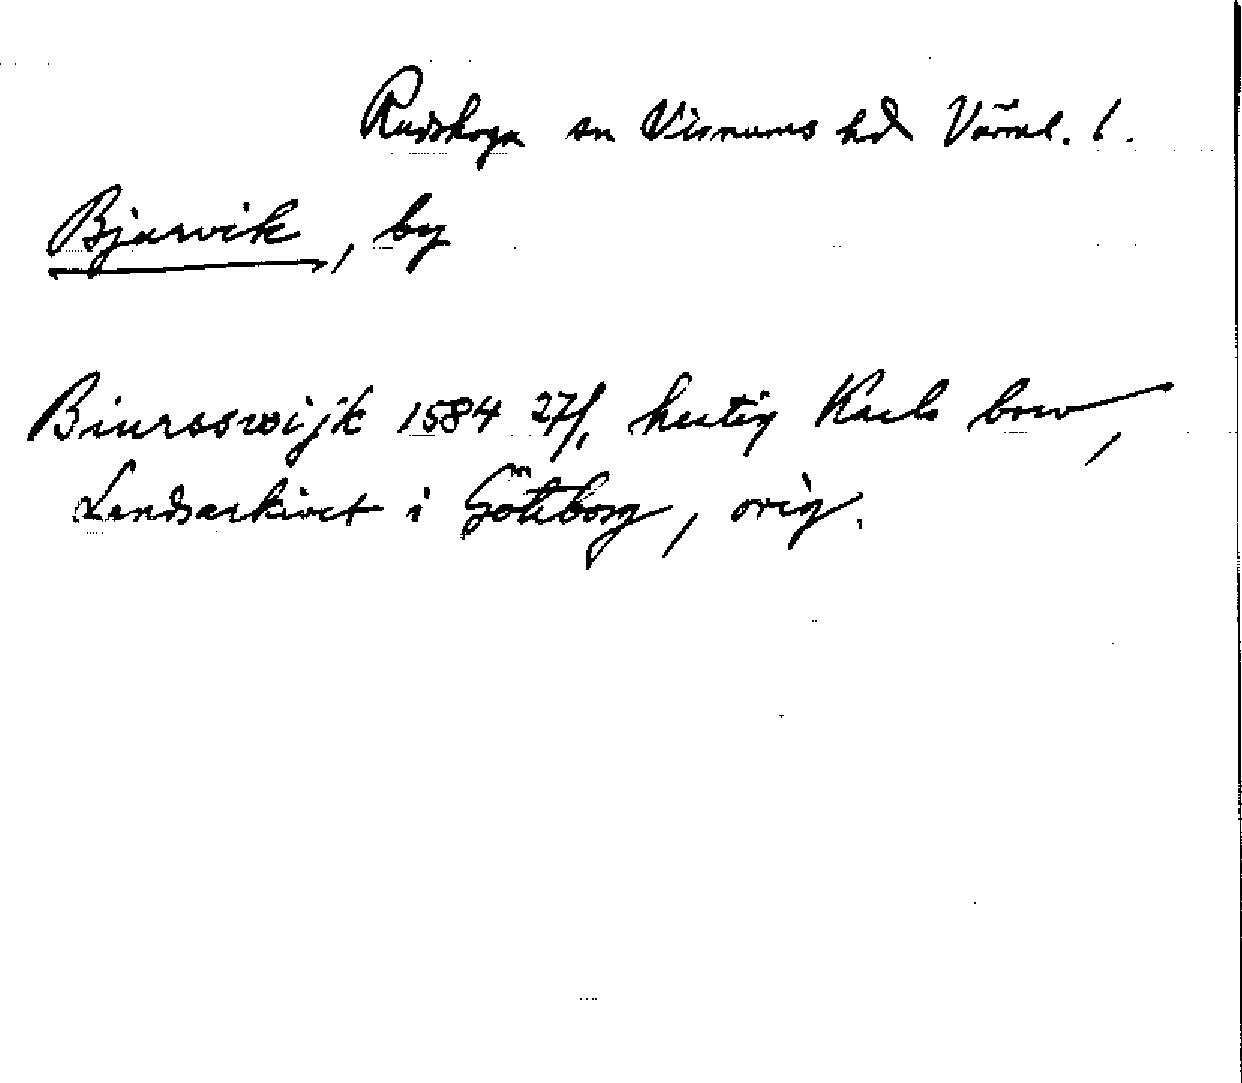 Rudskoga sn Visnums hd Värml. l.
Bjurvik, by
Biursswijk 1584 27/1 hertig Karls brev,
Landsarkivet i Göteborg, orig.